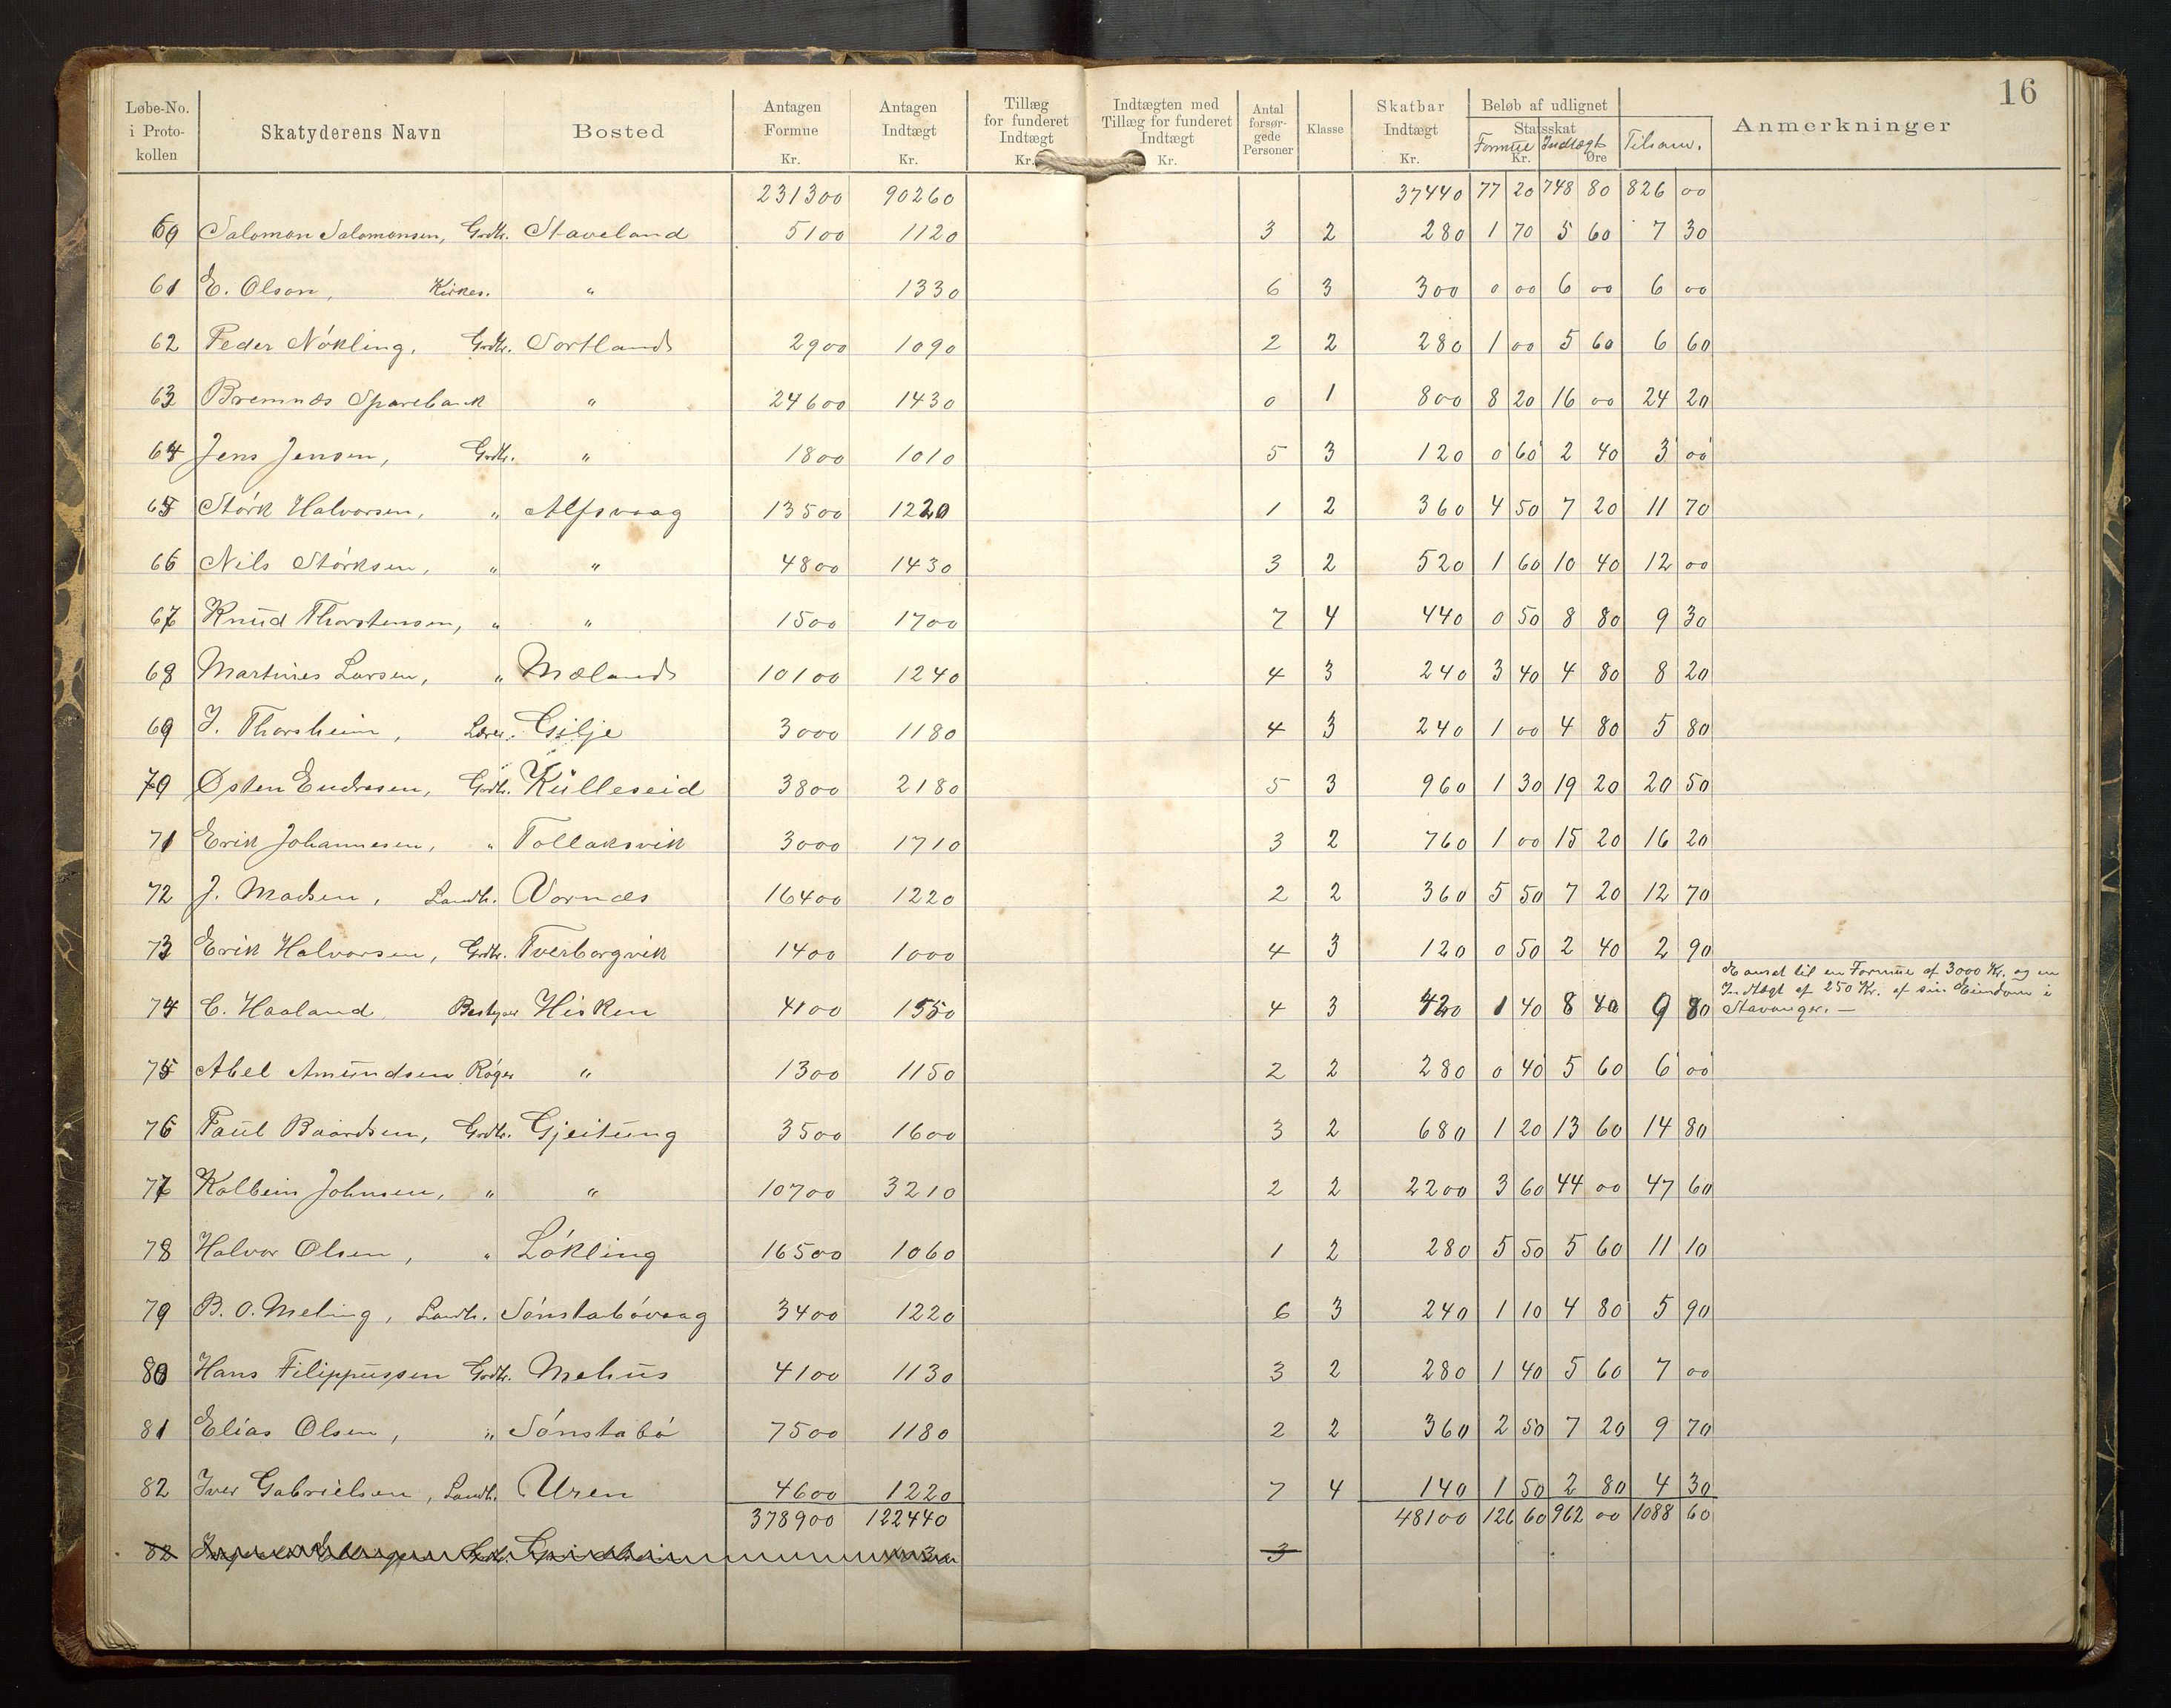 16
Løbe-No. i Proto-kollen | Skatyderens Navn | Bosted | Antagen Formue Kr. | Antagen Indtægt Kr. | Tillæg for funderet Indtægt Kr. | Indtægten med Tillæg for funderet Indtægt Kr. | Antal forsør-gede Personer | Klasse | Skatbar Indtægt Kr. | Beløb af udlignet Statsskat Formue Kr. Indtægt Øre | Tilsam. | Anmerkninger
231300 90260 37440 77 20 748 80 826 00
60 Salomon Salomonsen, Grdbr. Staveland 5100 1120 3 2 280 1 70 5 60 7 30
61 E. Olson, Kirkes. " 1330 6 3 300 0 00 6 00 6 00
62 Peder Nökling, Grdbr. Sortland 2900 1090 2 2 280 1 00 5 60 6 60
63 Bremnæs Sparebank " 24600 1430 0 1 800 8 20 16 00 24 20
64 Jens Jensen, Grdbr. " 1800 1010 5 3 120 0 60 2 40 3 00
65 Störk Halvorsen, " Alfsvaag 13500 1220 1 2 360 4 50 7 20 11 70
66 Nils Störksen, " " 4800 1430 3 2 520 1 60 10 40 12 00
67 Knud Thorstensen, " " 1500 1700 7 4 440 0 50 8 80 9 30
68 Martines Larsen, " Mæland 10100 1240 4 3 240 3 40 4 80 8 20
69 J. Thorsheim, Lærer. Gilje 3000 1180 4 3 240 1 00 4 80 5 80
70 Østen Endresen, Grdbr. Kulleseid 3800 2180 5 3 960 1 30 19 20 20 50
71 Erik Johannesen, " Tollaksvik 3000 1710 3 2 760 1 00 15 20 16 20
72 J. Madsen, Landh. Vornæs 16400 1220 2 2 360 5 50 7 20 12 70
73 Erik Halvorsen, Grdbr. Tverborgvik 1400 1000 4 3 120 0 50 2 40 2 90
74 C. Haaland Bestyrer Hisken 4100 1550 4 3 420 1 40 8 40 9 80 Er ansat til en Formue af 3000 Kr. og en
Indtægt af 250 Kr. af sin Eiendom i
Stavanger. —
75 Abel Amundsen Röger " 1300 1150 2 2 280 0 40 5 60 6 00
76 Paul Baardsen, Grdbr. Gjeitung 3500 1600 3 2 680 1 20 13 60 14 80
77 Kolbein Johnsen, " " 10700 3210 2 2 2200 3 60 44 00 47 60
78 Halvor Olsen, " Lökling 16500 1060 1 2 280 5 50 5 60 11 10
79 B. O. Meling, Landh. Sönstabövaag 3400 1220 6 3 240 1 10 4 80 5 90
80 Hans Filippussen Grdbr. Mehus 4100 1130 3 2 280 1 40 5 60 7 00
81 Elias Olsen, " Sönstabö 7500 1180 2 2 360 2 50 7 20 9 70
82 Iver Gabrielsen, Landh. Uren 4600 1220 7 4 140 1 50 2 80 4 30
378900 122440 48100 126 60 962 00 1088 60
82 3